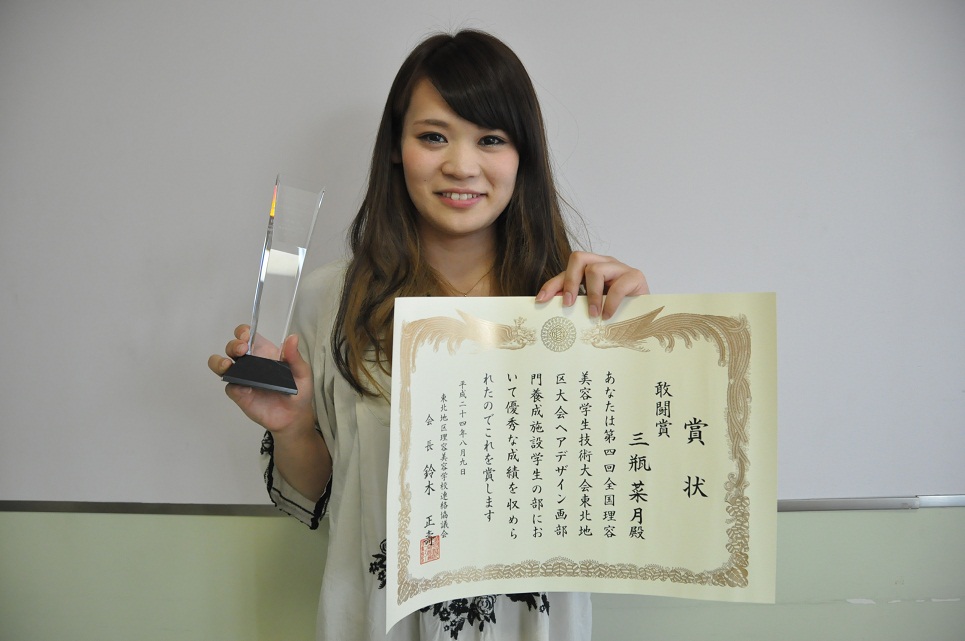 賞状
敢闘賞
三瓶菜月殿
あなたは第四回全国理容
美容学生技術大会東北地
区大会ヘアデザイン画部
門養成施設学生の部にお
いて優秀な成績を収めら
れたのでこれを賞します
平成二十四年八月九日
東北地区理容美容学校連絡協議会
会長 鈴木 正壽